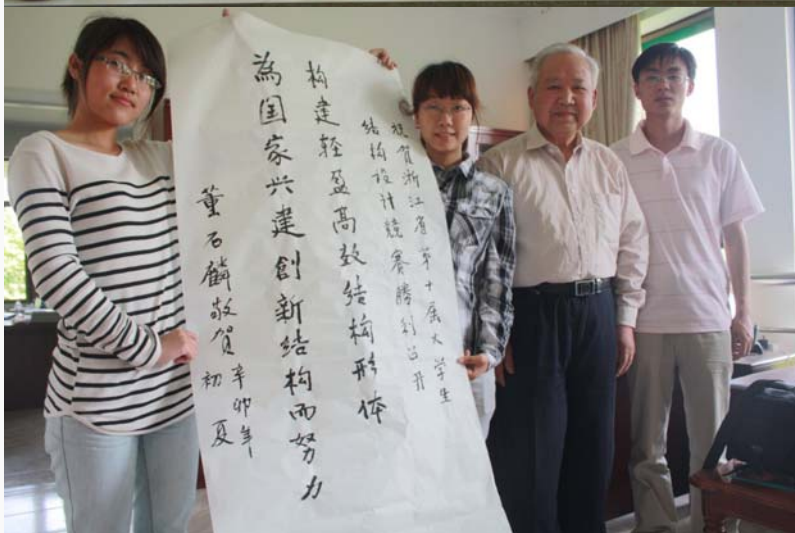 祝贺浙江省第十届大学生
结构设计竞赛胜利召开
构建轻盈高效结构形体
為国家兴建創新结构而努力
董石麟敬賀
辛卯年
初夏